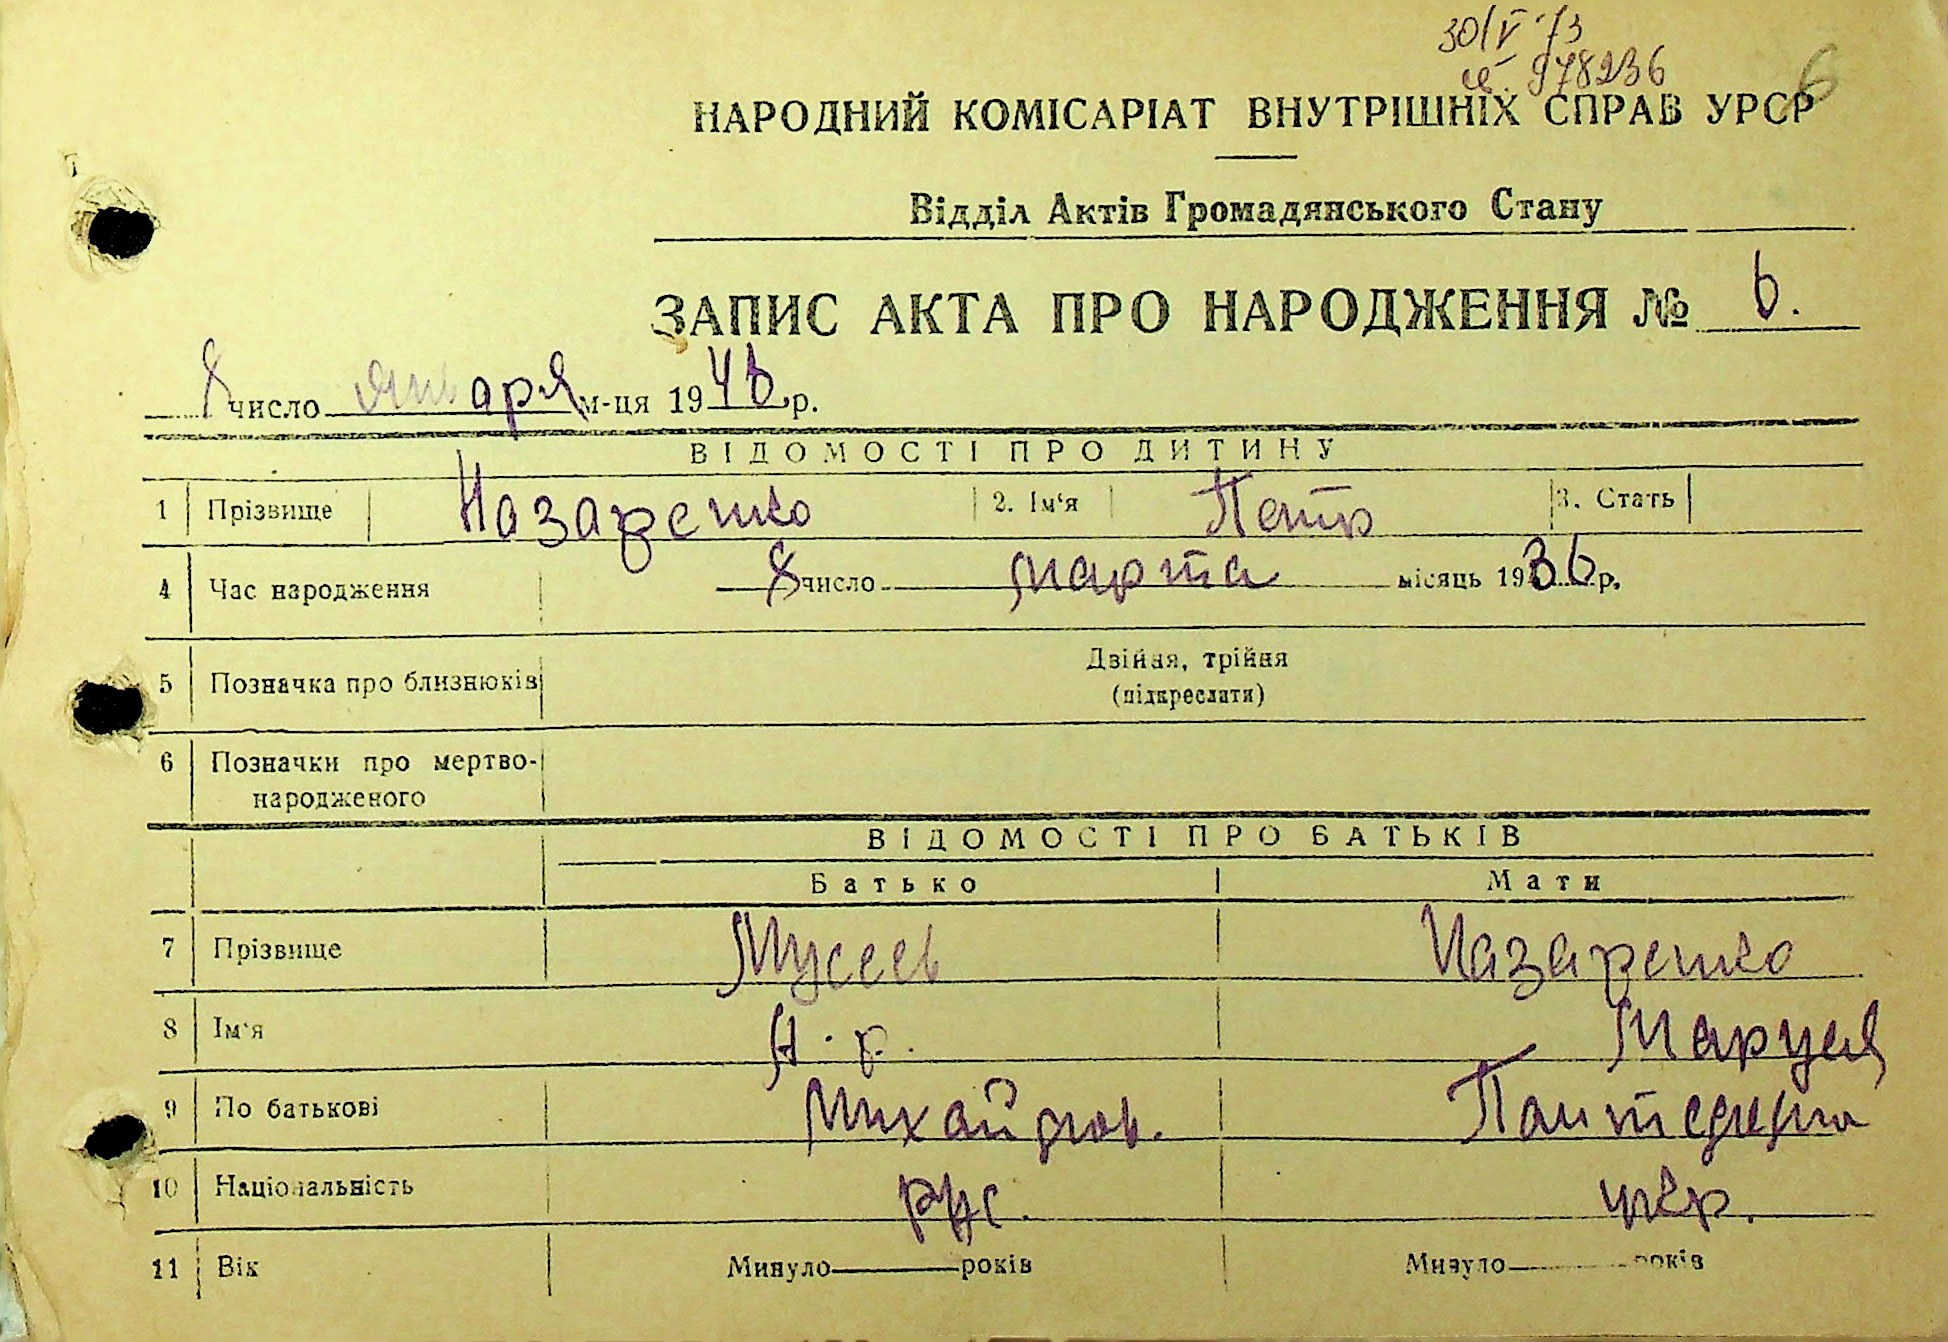 30/V 73
978236
6
НАРОДНИЙ КОМІСАРІАТ ВНУТРІШНІХ СПРАВ УРСР
Відділ Актів Громадянського Стану
ЗАПИС АКТА ПРО НАРОДЖЕННЯ № 6.
8 число января м-ця 1943 р.
ВІДОМОСТІ ПРО ДИТИНУ
1 Прізвище Назаренко 2. Ім'я Петр 3. Стать
4 Час народження 8 число марта місяць 1936 р.
5 Позначка про близнюків Двійня, трійня
(підкреслати)
6 Позначки про мертво-
народженого
ВІДОМОСТІ ПРО БАТЬКІВ
Батько Мати
7 Прізвище Мусеев Назаренко
8 Ім'я Маруся
9 По батькові Михайлов.
10 Національність рус. укр.
11 Вік Минуло років Минуло років